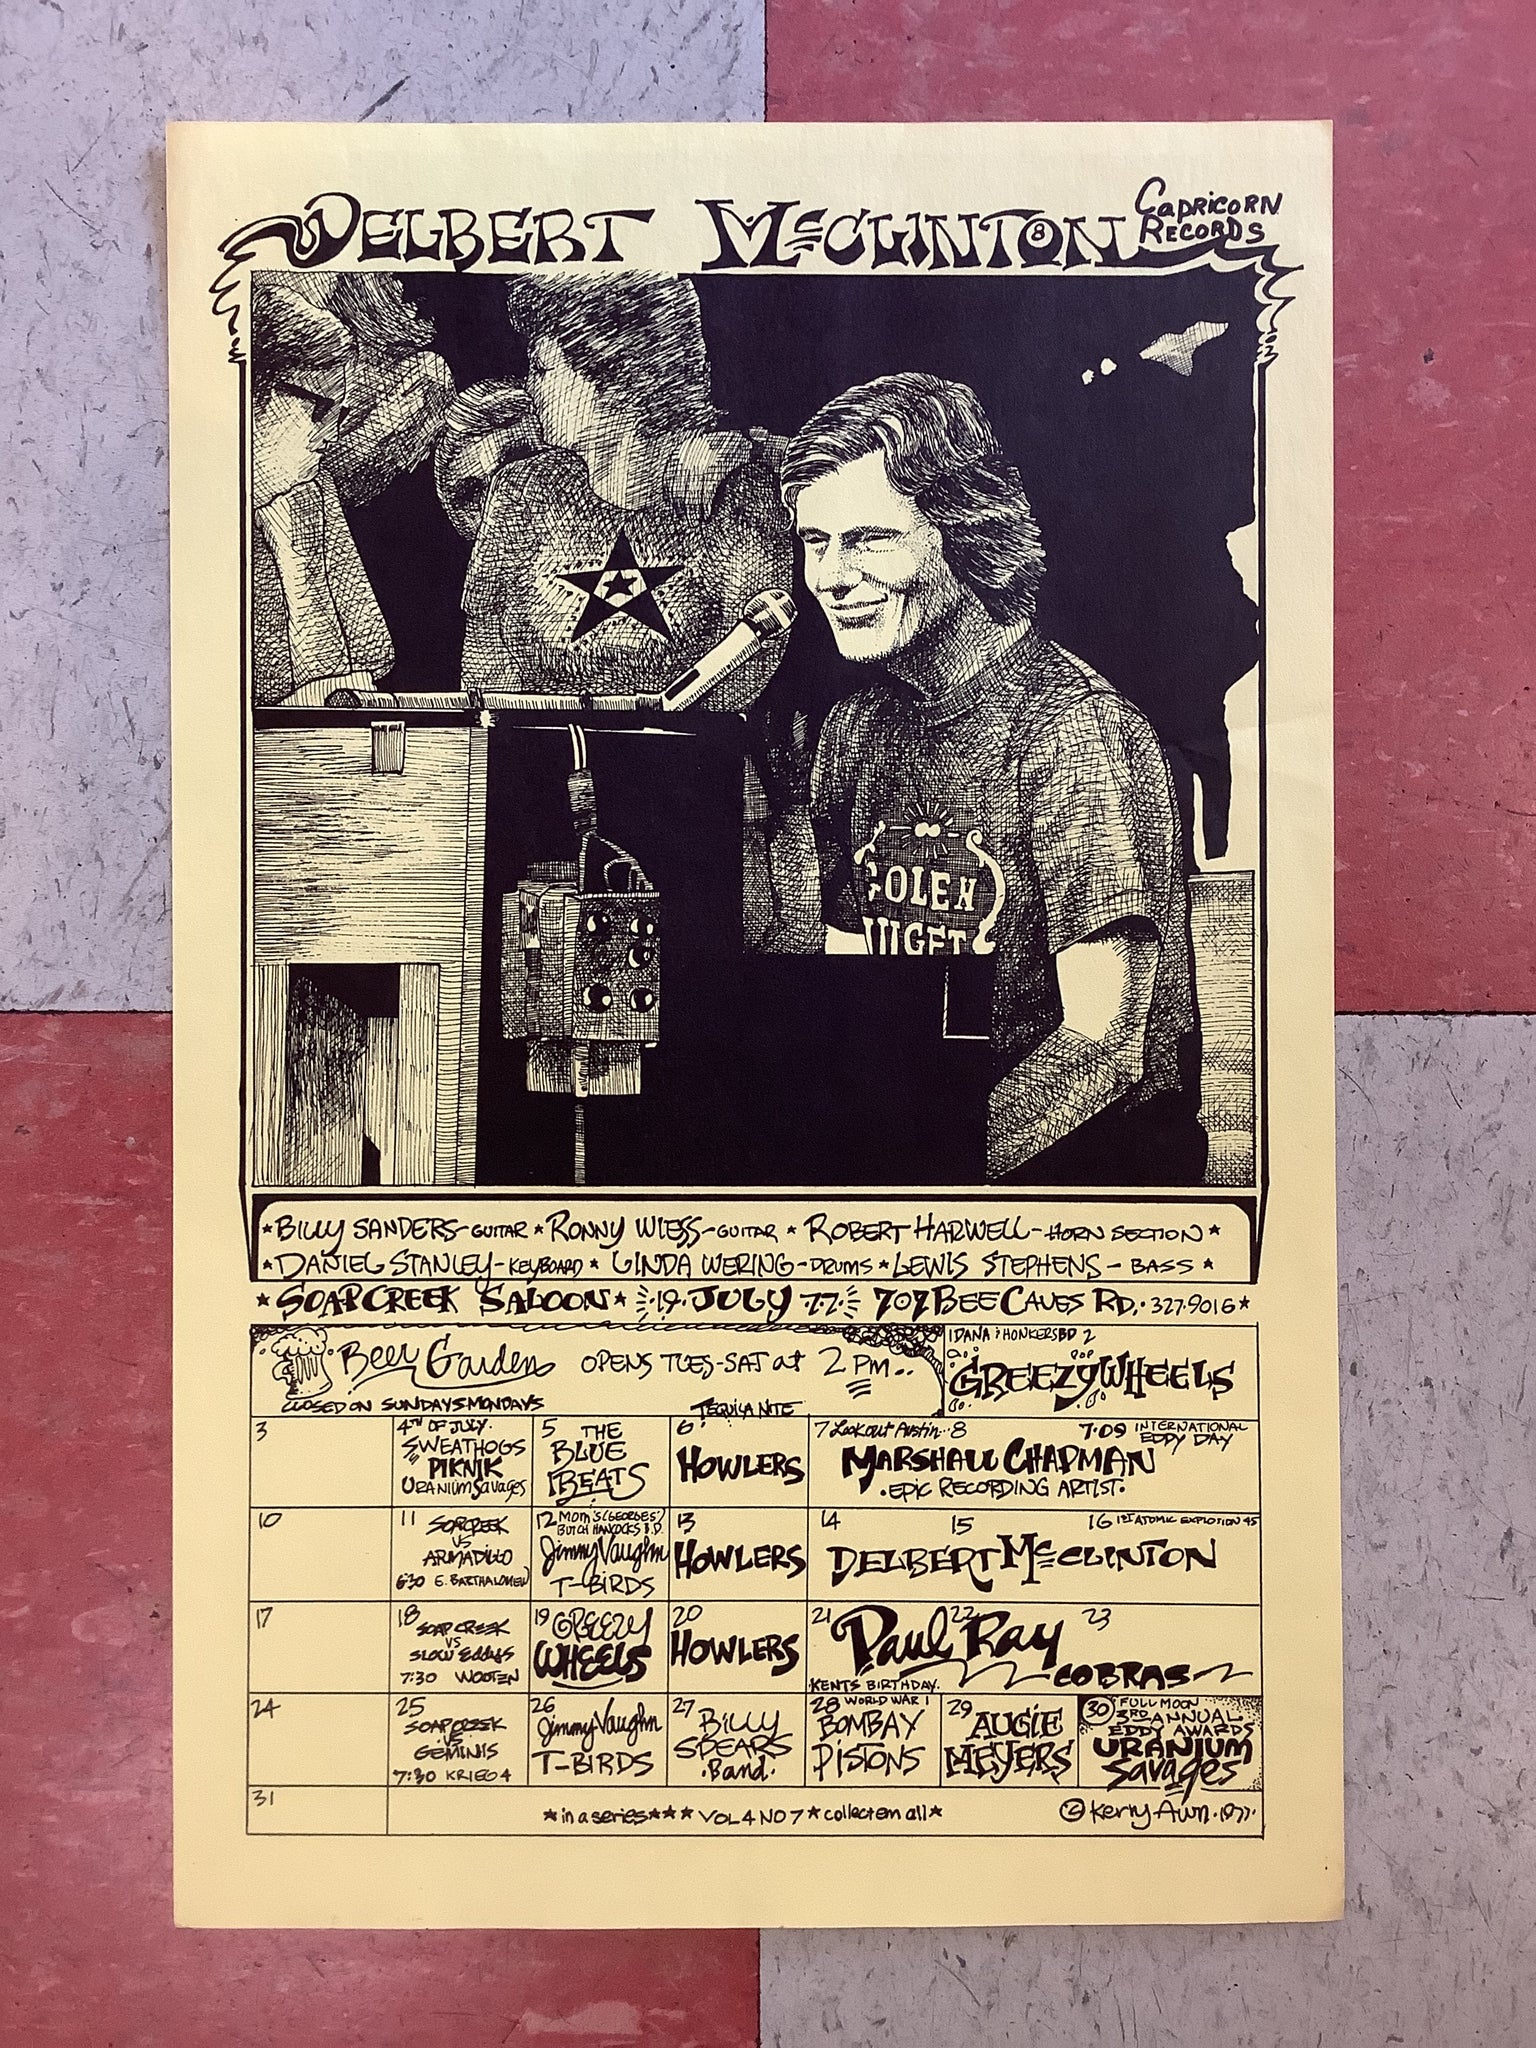 DELBERT McCLINTON
8
CAPRICORN
RECORDS
GOLEN
NUGET
★BILLY SANDERS-GUITAR ★ RONNY WIESS-GUITAR ★ ROBERT HARWELL-HORN SECTION★
★DANIEL STANLEY-KEYBOARD★ LINDA WERING-DRUMS ★ LEWIS STEPHENS-BASS ★
★SOAP CREEK SALOON★ 19 JULY 77 707 BEE CAVES RD. 327-9016★
Beer Garden OPENS TUES-SAT at 2 PM..
CLOSED ON SUNDAYS MONDAYS
1 DANA & HONKERS BD 2
GREEZY WHEELS
TEQUILA NITE
3
4TH OF JULY
SWEATHOGS
PIKNIK
URANIUM SAVAGES
5 THE
BLUE
BEATS
6
HOWLERS
7 Lookout Austin.. 8 7.09 INTERNATIONAL
EDDY DAY
MARSHALL CHAPMAN
.EPIC RECORDING ARTIST.
10
11 SOAPCREEK
VS
ARMADILLO
6:30 E. BARTHALOMEW
12 MOM'S (GEORGES')
BUTCH HANCOCKS B.D.
Jimmy Vaughn
T-BIRDS
13
HOWLERS
14 15 16 1ST ATOMIC EXPLOTION 45
DELBERT McCLINTON
17
18 SOAP CREEK
VS
SLOW EDDYS
7:30 WOOTEN
19 GREEZY
WHEELS
20
HOWLERS
21 22 23
Paul Ray
KENTS BIRTHDAY. COBRAS
24
25
SOAPCREEK
VS
GEMINIS
7:30 KRIEG 4
26
Jimmy Vaughn
T-BIRDS
27 BILLY
SPEARS
.Band.
28 WORLD WAR I
BOMBAY
PISTONS
29 AUGIE
MEYERS
30 FULL MOON
3RD ANNUAL
EDDY AWARDS
URANIUM
SAVAGES
31
★in a series★★★ VOL 4 NO 7 ★ collect em all★
© Kerry Awn.1977.